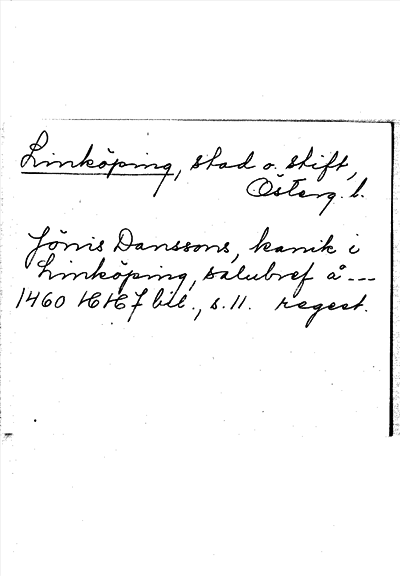 Linköping, stad o. stift,
Österg. l.
Jönis Danssons, kanik i
Linköping, salubref å ---
1460 HH 7 bil., s. 11. regest.